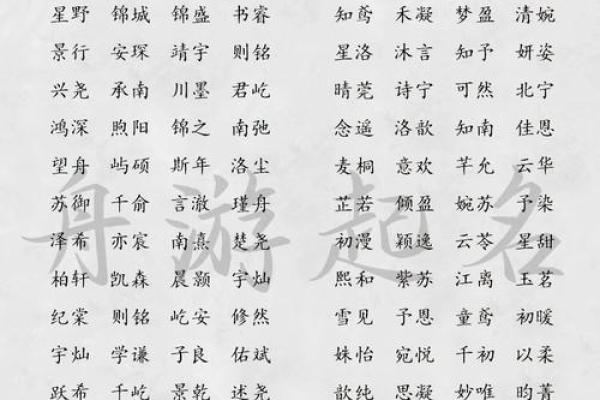 星野 锦城 锦盛 书睿 知鸢 禾凝 梦盈 清婉
景行 安琛 靖宇 则铭 星洛 沐言 知予 妍姿
兴尧 承南 川墨 君屹 晴莞 诗宁 可然 北宁
鸿深 煦阳 锦之 南弛 念遥 洛歆 知南 佳恩
望舟 屿硕 斯年 洛尘 麦桐 意欢 芊允 云华
苏御 千俞 言澈 瑾舟 芷若 倾盈 婉苏 予染
舟游起名
泽希 亦宸 南熹 楚尧 初漫 颖逸 云苓 星甜
柏轩 凯森 晨颢 宇灿 熙和 紫苏 江离 玉茗
纪棠 则铭 屹安 修然 雪见 予恩 童鸢 初暖
宇灿 学谦 子良 佑斌 姝怡 宛悦 千初 以柔
跃希 千屹 景乾 述尧 歆纯 思凝 妙唯 昀菁